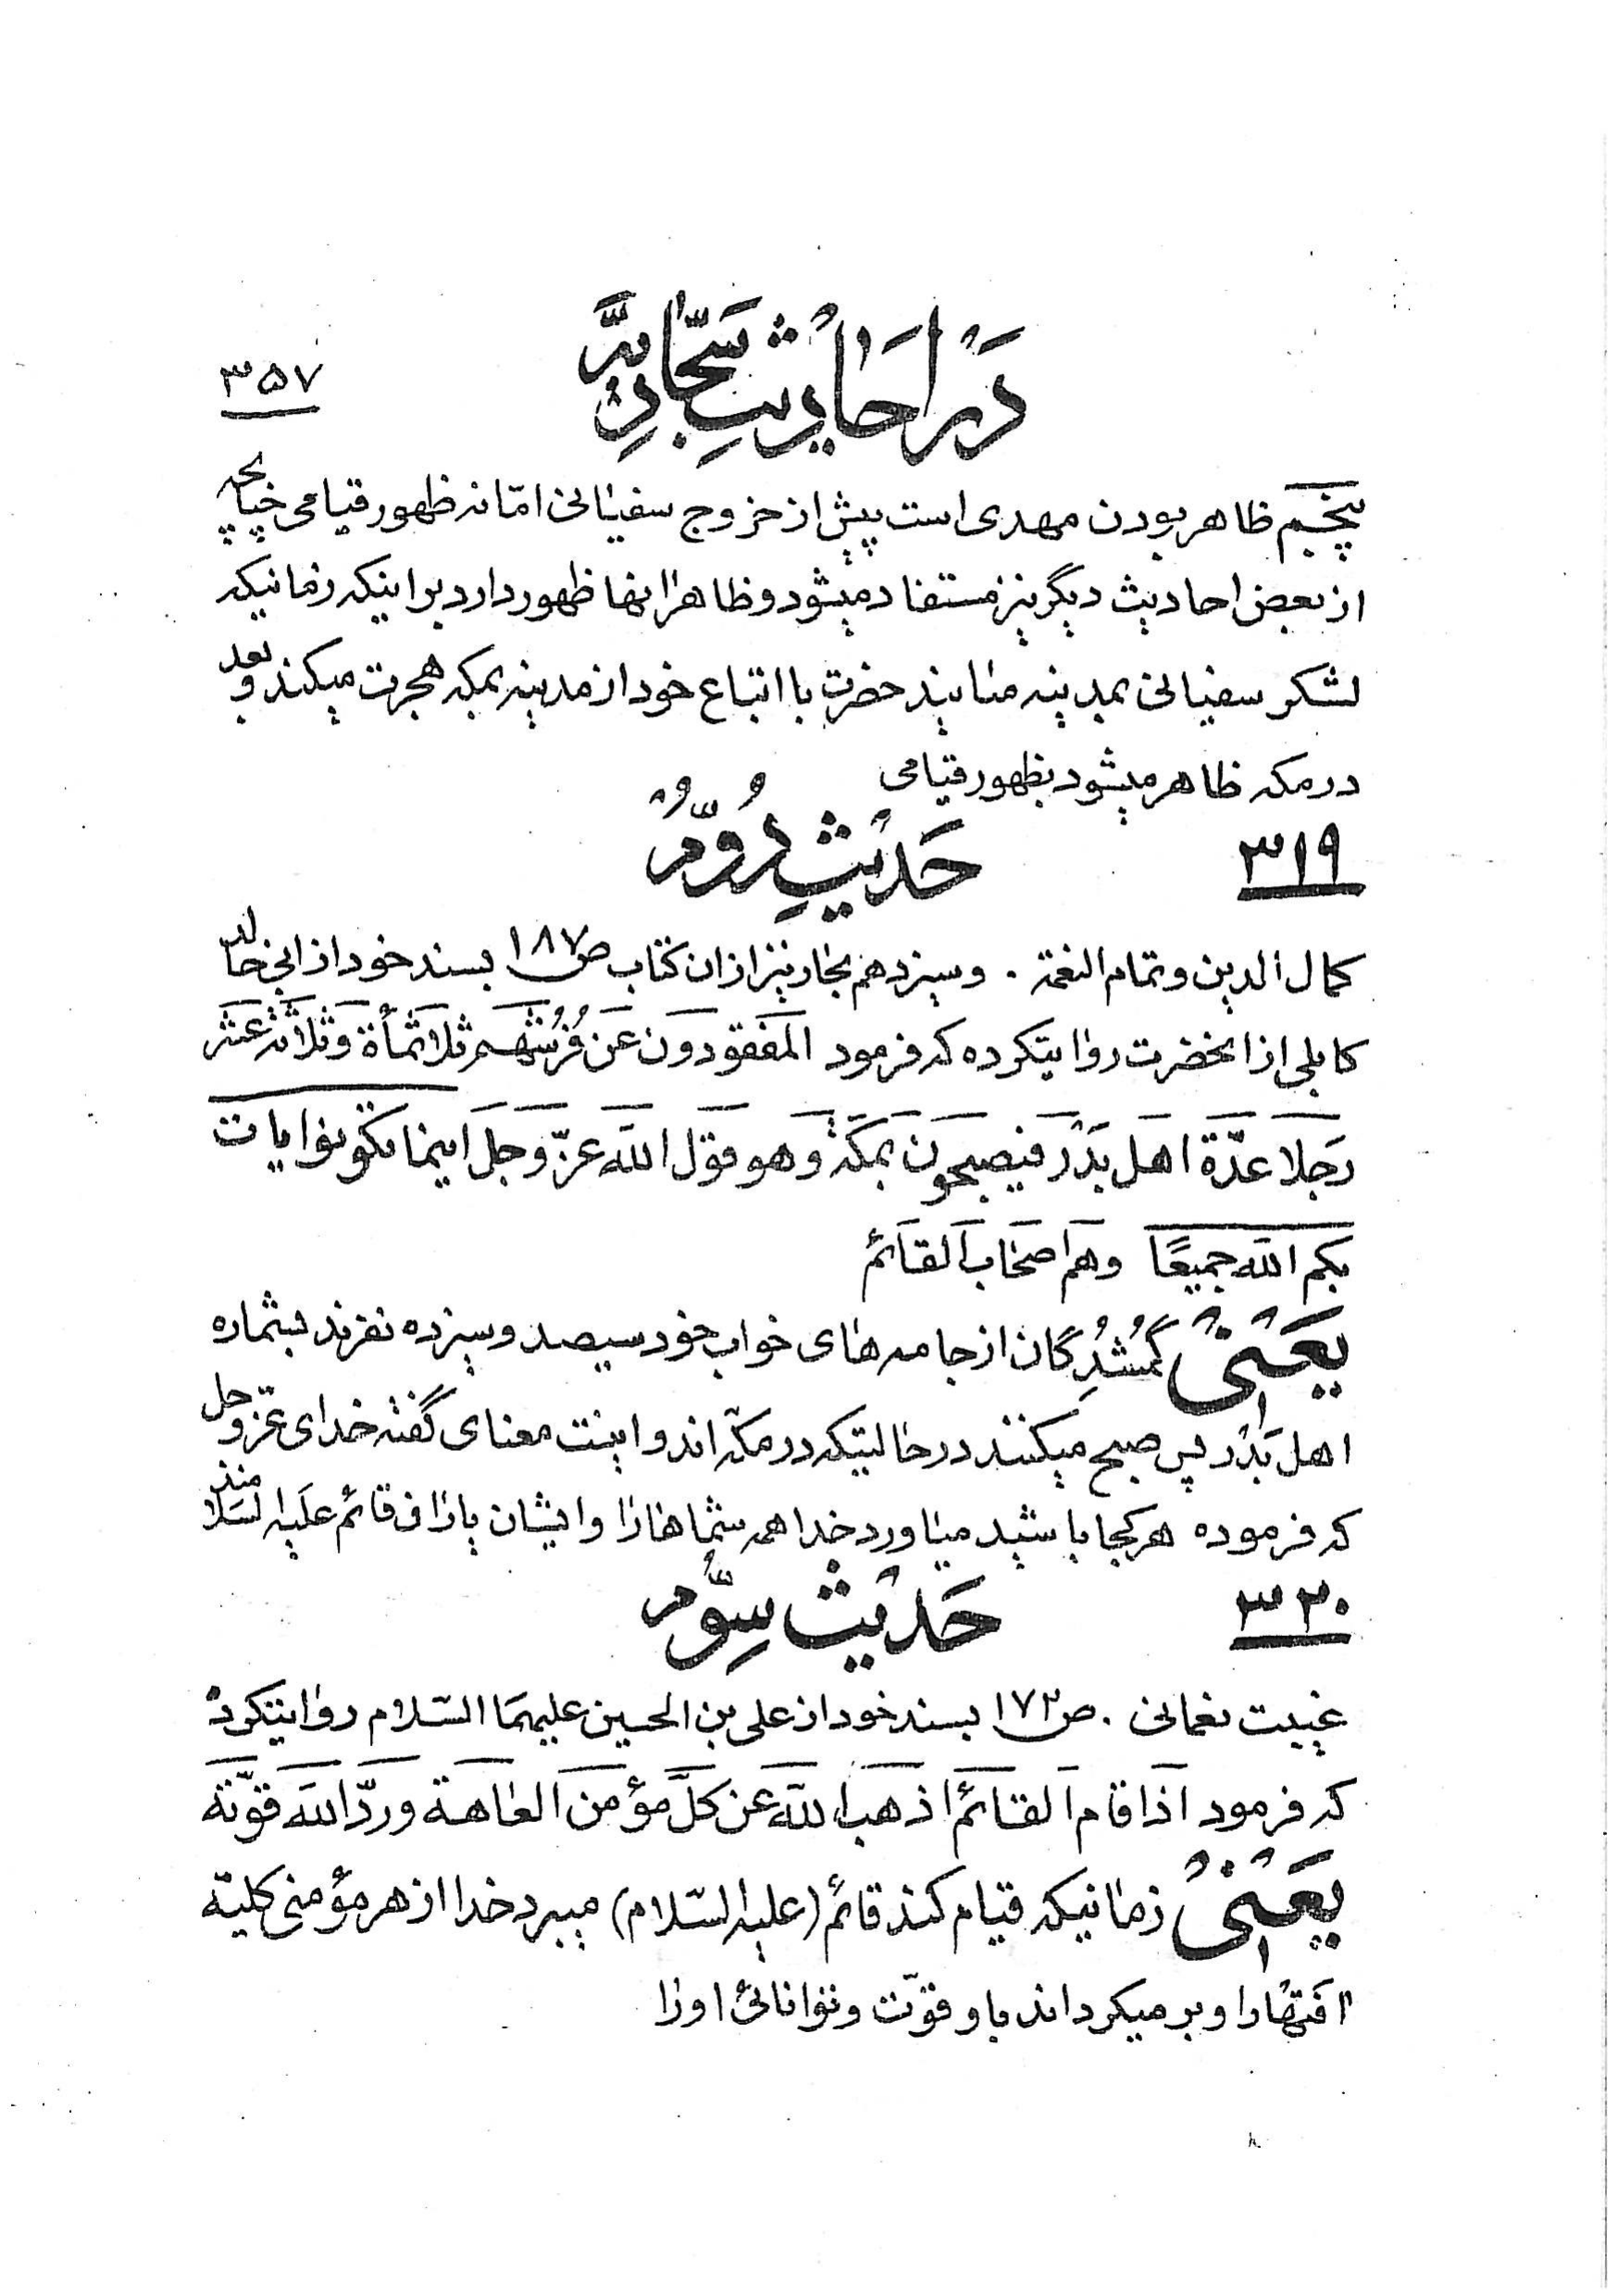 در احادیث سجّادیّه
۳۵۷
پنجم ظاهر بودن مهدی است پیش از خروج سفیانی امّا نه ظهور قیامی چنانچه
از بعض احادیث دیگر نیز مستفاد میشود و ظاهرا انها ظهور دارد بر اینکه زمانیکه
لشکر سفیانی بمدینه میایند حضرت با اتباع خود از مدینه بمکه هجرت میکند و بعد
در مکه ظاهر میشود بظهور قیامی
۳۱۹
حَدیثِ دُوّمُ
کمال الدین و تمام النعمة . و سیزدهم بحار نیز از ان کتاب ص ۱۸۷ بسند خود از ابی خالد
کابلی از انحضرت روایتکرده که فرمود المَفقودون عَن فُرُشِهِم ثلاثمأة وَ ثلاثة عَشَر
رَجلا عدّة اهل بَدْر فیصبحون بمکّة و هو قول اللّه عزّ و جلّ اینما تکونوا یات
بکم اللّه جمیعًا و هم اصحاب القائم
یَعْنیْ گمشُدِگان از جامه های خواب خود سیصد و سیزده نفرند بشماره
اهل بَدْر پس صبح میکنند در حالیتکه در مکّه اند و اینست معنای گفته خدای عزّ و جل
که فرموده هر کجا باشید میاورد خدا همه شما هارا و ایشان یاران قائم علیه السّلا منند
۳۲۰
حَدیْث سِوّم
غیبت نعمانی . ص ۱۷۲ بسند خود از علی بن الحسین علیهما السّلام روایتکرد
که فرمود اذا قام القائم اذهب اللّه عن کلّ مؤمن العاهة و ردّ اللّه قوّته
یَعْنیْ زمانیکه قیام کند قائم (علیه السّلام) میبرد خدا از هر مؤمنی کلیّه
افتهارا و بر میگرداند باو قوّت و توانائی اورا